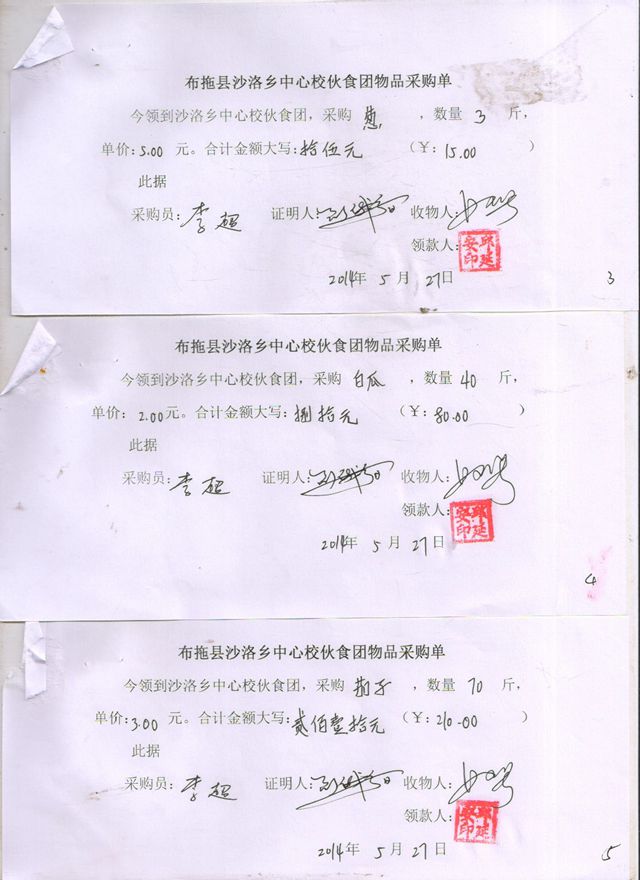 布拖县沙洛乡中心校伙食团物品采购单
今领到沙洛乡中心校伙食团，采购 葱 ，数量 3 斤，
单价：5.00 元。合计金额大写：拾伍元 （￥：15.00 ）
此据
采购员：李超 证明人： 收物人：
领款人：邱延安印
2014年 5 月 27日
3
布拖县沙洛乡中心校伙食团物品采购单
今领到沙洛乡中心校伙食团，采购 白瓜 ，数量 40 斤，
单价：2.00元。合计金额大写：捌拾元 （￥：80.00 ）
此据
采购员：李超 证明人： 收物人：
领款人：邱延安印
2014年 5 月 27日
4
布拖县沙洛乡中心校伙食团物品采购单
今领到沙洛乡中心校伙食团，采购 茄子 ，数量 70 斤，
单价：3.00 元。合计金额大写：贰佰壹拾元 （￥：210.00 ）
此据
采购员：李超 证明人： 收物人：
领款人：邱延安印
2014年 5 月 27日
5